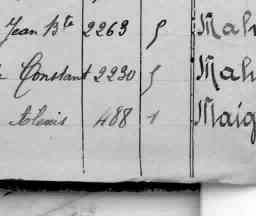 Jean Bte 2263 5 Mah
Constant 2230 5 Mah
Alexis 488 1 Maig